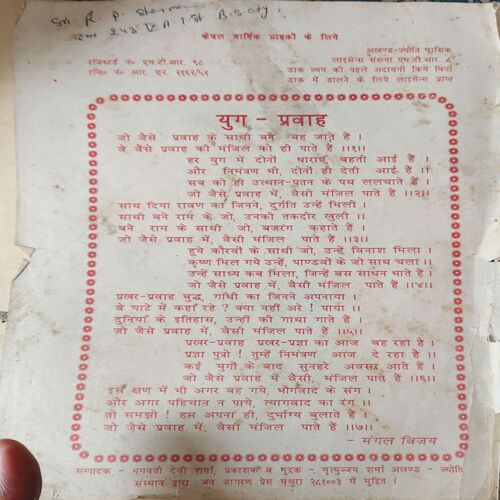 केवल वार्षिक ग्राहकों के लिये
अखण्ड-ज्योति मासिक
रजिस्टर्ड नं० एम.टी.आर. १८
लाइसेन्स संख्या एम.टी.आर. ८
रजि० नं० आर. एन. २१६२/५२
डाक व्यय की पहले अदायगी किये बिना
डाक में डालने के लिये लाइसेन्स प्राप्त
युग - प्रवाह
जो जैसे प्रवाह के साथी बने बह जाते हैं ।
वे वैसे प्रवाह की मंजिल को ही पाते हैं ।।१।।
हर युग में दोनों धाराएँ बहती आई हैं ।
और निमंत्रण भी, दोनों ही देती आई हैं ।।
सब को ही उत्थान-पतन के पथ ललचाते हैं ।
जो जैसे प्रवाह में, वैसी मंजिल पाते हैं ।।२।।
साथ दिया रावण का जिनने, दुर्गति उन्हें मिली ।
साथी बने राम के जो, उनकी तकदीर खुली ।।
बने राम के साथी जो, बजरंग कहाते हैं ।
जो जैसे प्रवाह में, वैसी मंजिल पाते हैं ।।३।।
हुये कौरवों के साथी जो, उन्हें विनाश मिला ।
कृष्ण मिल गये उन्हें, पाण्डवों के जो साथ चला ।।
उन्हें साध्य कब मिला, जिन्हें बस साधन भाते हैं ।
जो जैसे प्रवाह में, वैसी मंजिल पाते हैं ।।४।।
प्रखर-प्रवाह बुद्ध, गाँधी का जिनने अपनाया ।
वे घाटे में कहाँ रहे ? क्या नहीं अरे ! पाया ।।
दुनियाँ के इतिहास, उन्हीं की गाथा गाते हैं ।
जो जैसे प्रवाह में, वैसी मंजिल पाते हैं ।।५।।
प्रखर-प्रवाह प्रखर-प्रज्ञा का आज बह रहा है ।
प्रज्ञा पुत्रो ! तुम्हें निमंत्रण आज दे रहा है ।।
कई युगों के बाद सुनहरे अवसर आते हैं ।
जो जैसे प्रवाह में, वैसी, मंजिल पाते हैं ।।६।।
इस क्षण में भी अगर बह गये, भोगवाद के संग ।
और अगर पहिचान न पाये, त्यागवाद का रंग ।।
तो समझो ! हम अपना ही, दुर्भाग्य बुलाते हैं ।
जो जैसे प्रवाह में, वैसी मंजिल पाते हैं ।।७।।
- मंगल विजय
सम्पादक - भगवती देवी शर्मा, प्रकाशक व मुद्रक - मृत्युञ्जय शर्मा अखण्ड - ज्योति
संस्थान द्वारा जन जागरण प्रेस मथुरा २८१००३ में मुद्रित ।